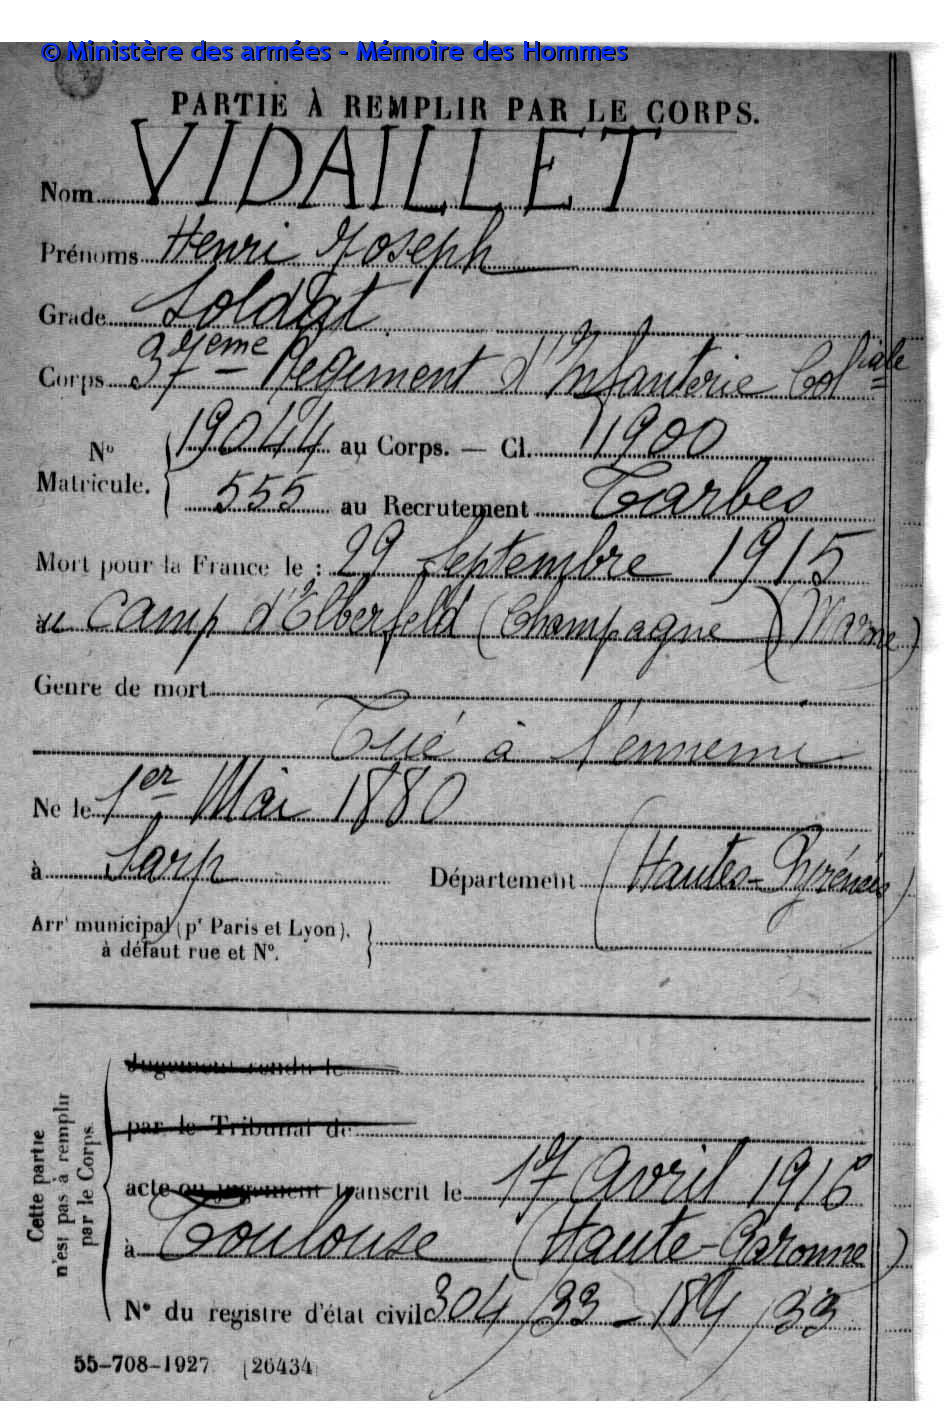 © Ministère des armées - Mémoire des Hommes
PARTIE À REMPLIR PAR LE CORPS.
Nom VIDAILLET
Prénoms Henri Joseph
Grade Soldat
Corps 37eme Régiment d'Infanterie Coloniale
N° Matricule. { 19044 au Corps. — Cl. 1900
555 au Recrutement Tarbes
Mort pour la France le : 29 Septembre 1915
au Camp d'Elberfeld (Champagne) (Marne)
Genre de mort
Tué à l'ennemi
Né le 1er Mai 1880
à Sarp Département (Hautes-Pyrénées)
Arrt municipal (pr Paris et Lyon),
à défaut rue et N°.
Cette partie n'est pas à remplir par le Corps.
Jugement rendu le
par le Tribunal de
acte ou jugement transcrit le 17 Avril 1916
à Toulouse (Haute-Garonne)
N° du registre d'état civil 304/33 - 184/33
55-708-1927. [26434]